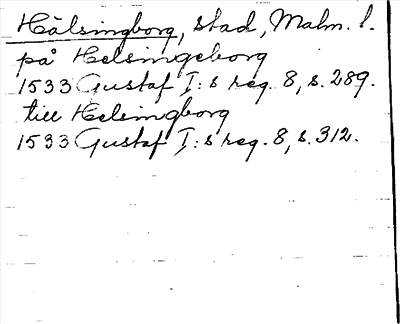 Hälsingborg, stad, Malm. l.
på Helsingeborg
1533 Gustaf I:s reg. 8, s. 289.
till Helsingborg
1533 Gustaf I:s reg. 8, s. 312.